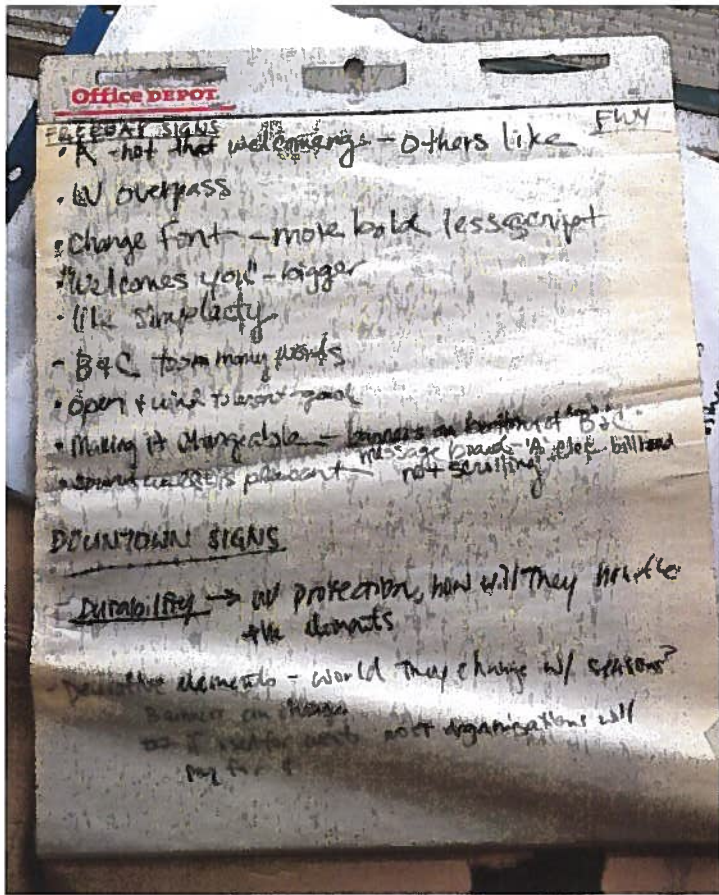 Office DEPOT
FREEWAY SIGNS
FWY
• A - not that welcoming - others like
• LV overpass
• Change Font - more bold less script
• "Welcomes you" - bigger
• like
- B&C too many words
• open + wind tolerant - good
• Making it changeable - banners on bottom of B&C
message board - elec. billboard
not scrolling
DOWNTOWN SIGNS
- Durability → UV protection, how will they handle
the elements
- Decorative elements - would they change w/ seasons?
Banners can change
if used for most organizations will
pay for